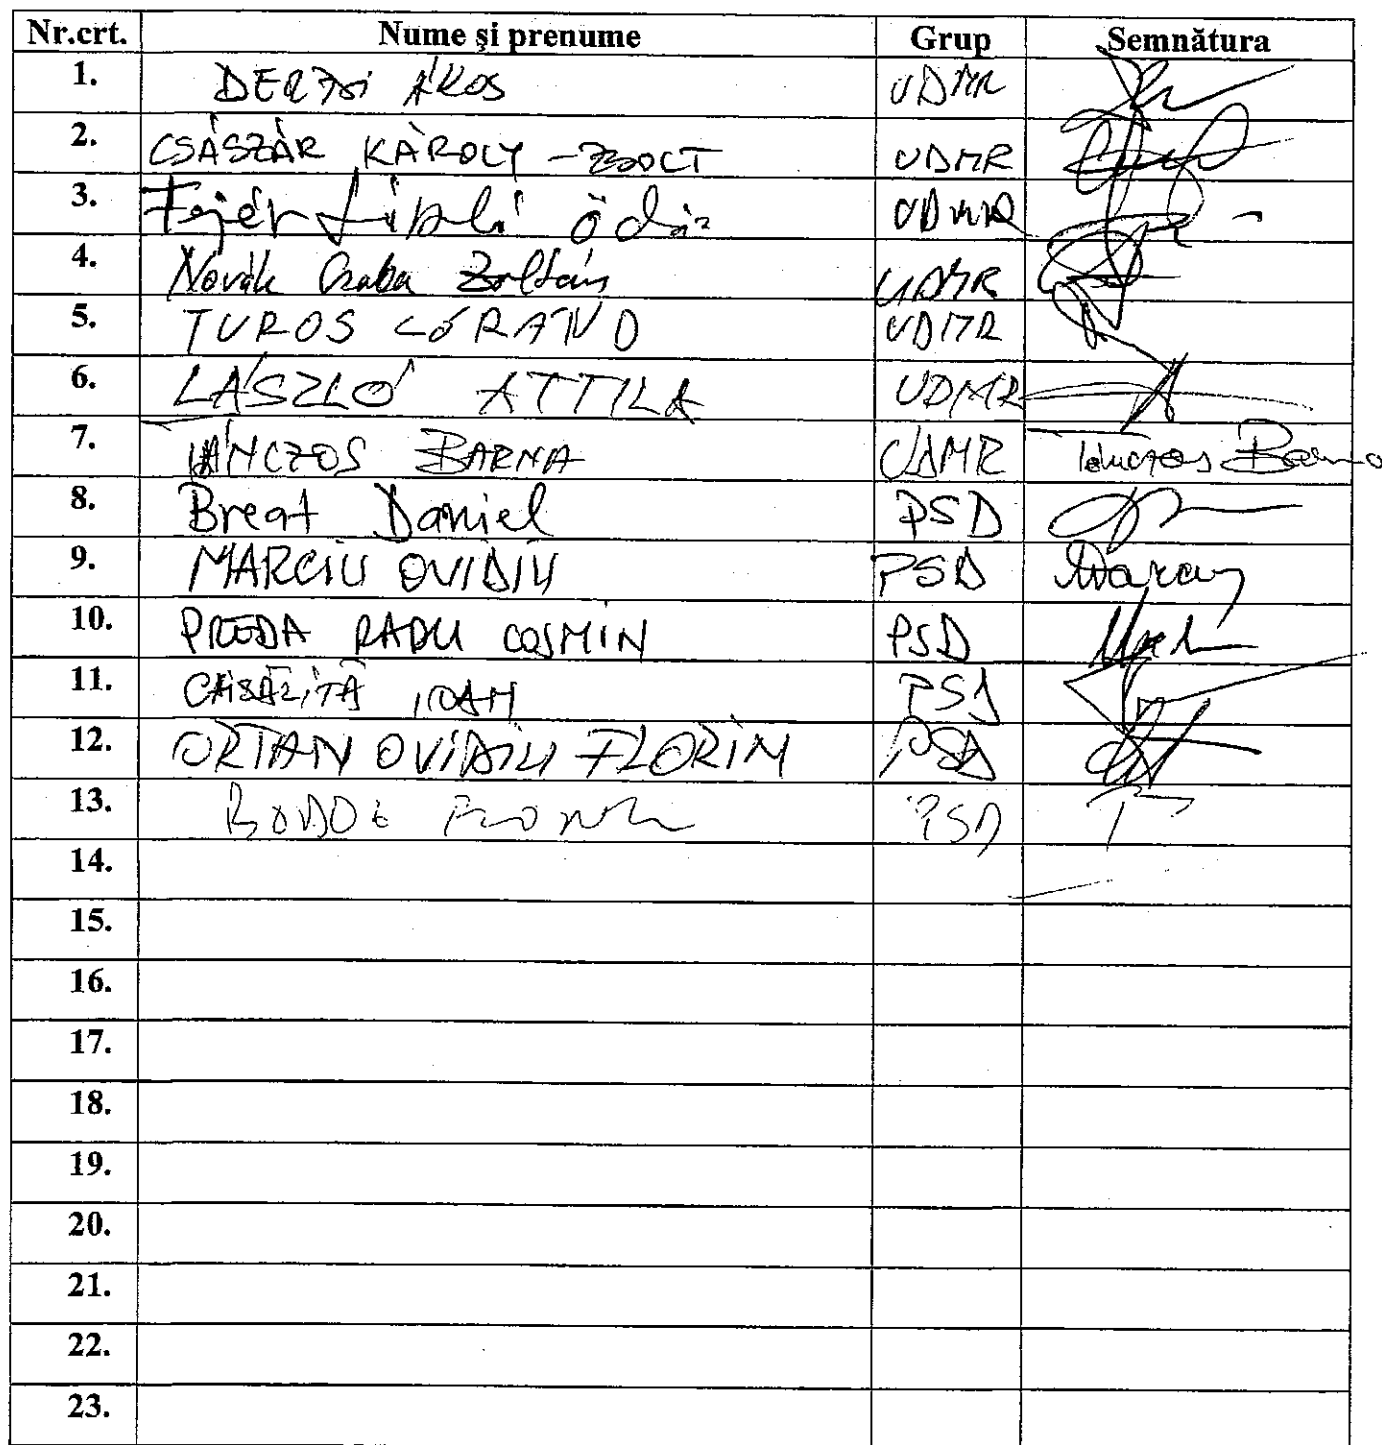 Nr.crt. Nume și prenume Grup Semnătura
1. DERZSI ÁKOS UDMR
2. CSÁSZÁR KÁROLY-ZSOLT UDMR
3. Fejér László Ödön UDMR
4. Novák Csaba Zoltán UDMR
5. TUROS LÓRÁND UDMR
6. LÁSZLÓ ATTILA UDMR
7. TÁNCZOS BARNA UDMR Tánczos Barna
8. Breat Daniel PSD
9. MARCIU OVIDIU PSD Marciu
10. PREDA RADU COSMIN PSD
11. IOAN PSD
12. ORTAN OVIDIU FLORIN PSD
13. PSD
14.
15.
16.
17.
18.
19.
20.
21.
22.
23.